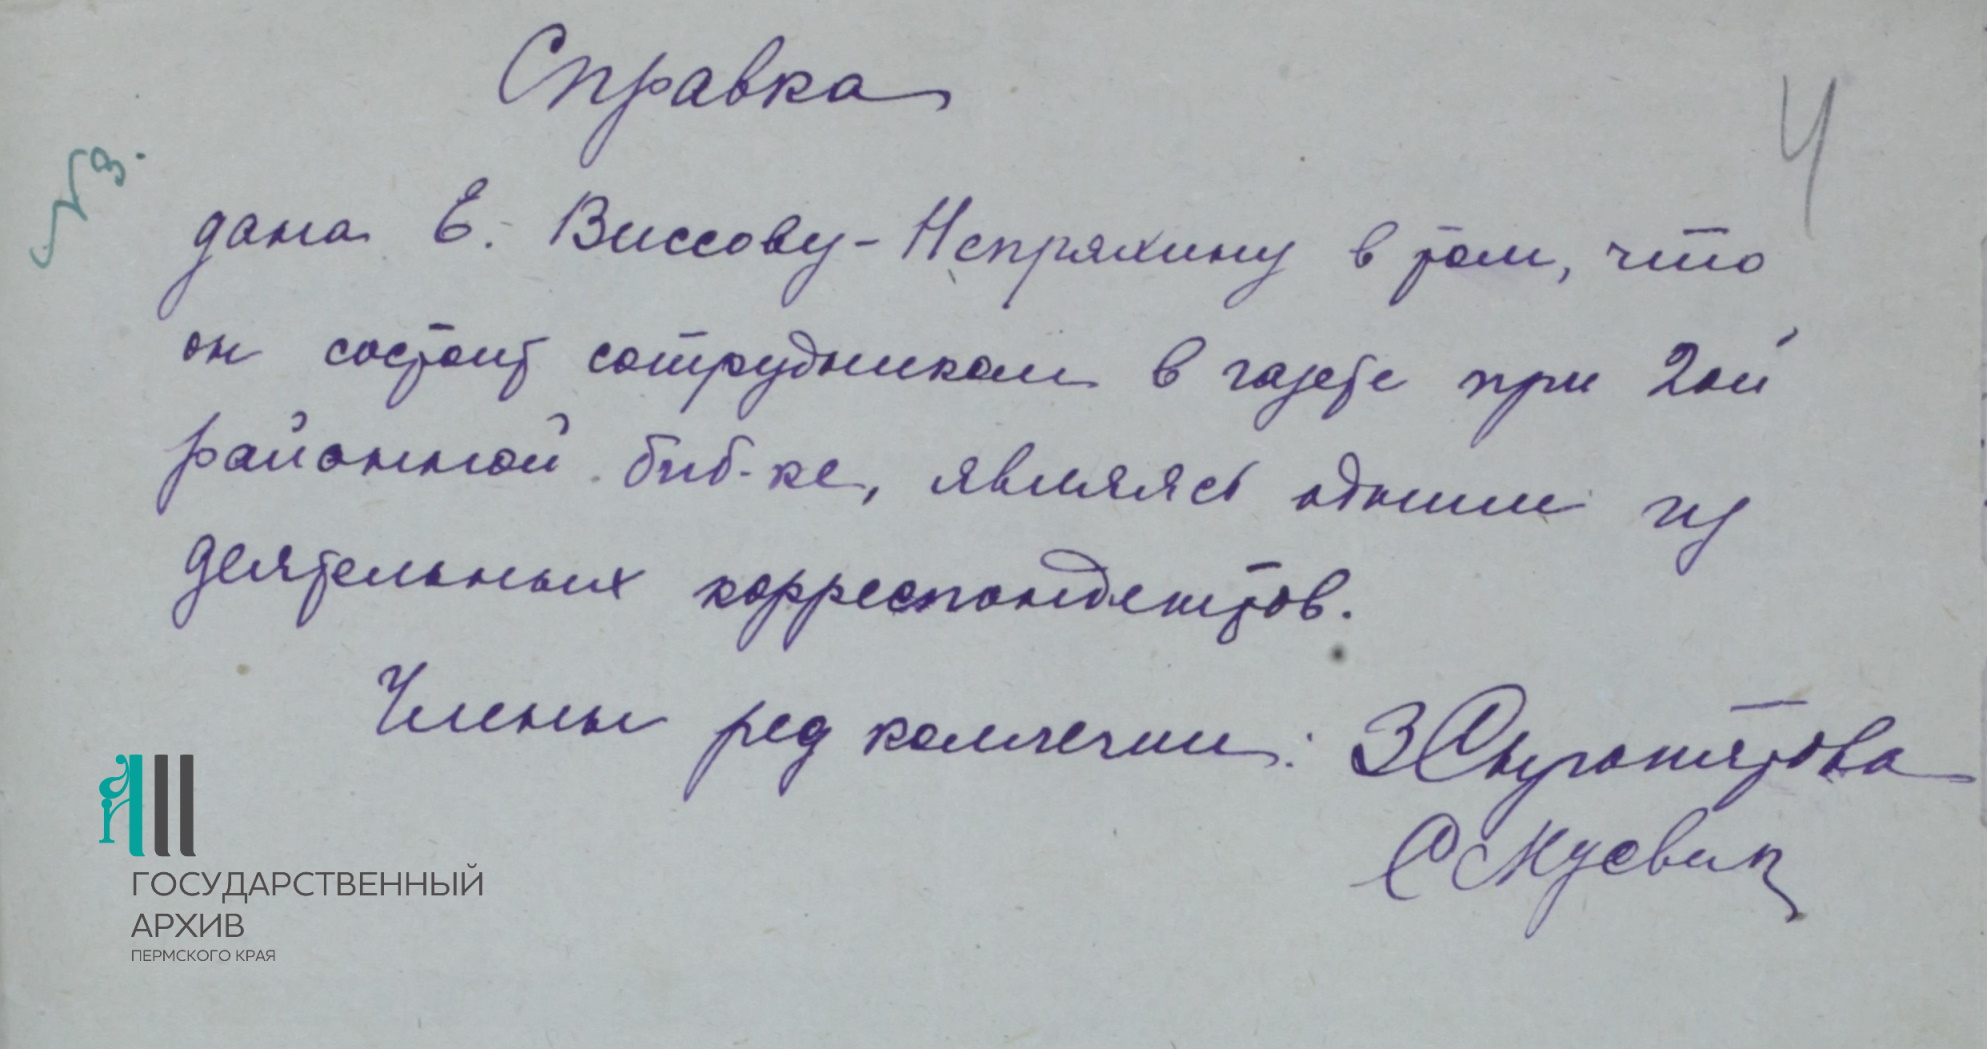 Справка
4
№ 3.
дана Е. Виссову-Непряхину в том, что
он состоит сотрудником в газете при 2ой
районной биб-ке, являясь одним из
деятельных корреспондентов.
Члены ред коллегии: З
С
ГОСУДАРСТВЕННЫЙ
АРХИВ
ПЕРМСКОГО КРАЯ